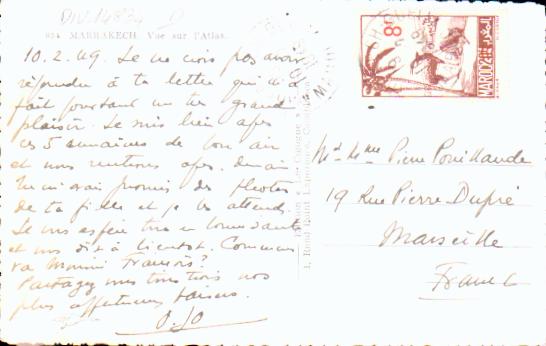 DIV. 14834
824 _ MARRAKECH. Vue sur l'Atlas.
10.2.49. Je ne crois pas avoir
répondu à ta lettre qui m'a
fait pourtant un très grand
plaisir. Je suis bien après
ces 5 semaines de bon air
et nous rentrons après demain.
Tu m'avais promis des photos
de ta fille et je les attends.
Je vous espère tous en bonne santé
et vous dis à bientôt. Comment
va Mimi François?
Partagez vous tous trois nos
plus affectueux baisers.
O. Jo
8F
MAROC
POSTES
Mr. et Mme Pierre Pouillaude
19 Rue Pierre Dupré
Marseille
France